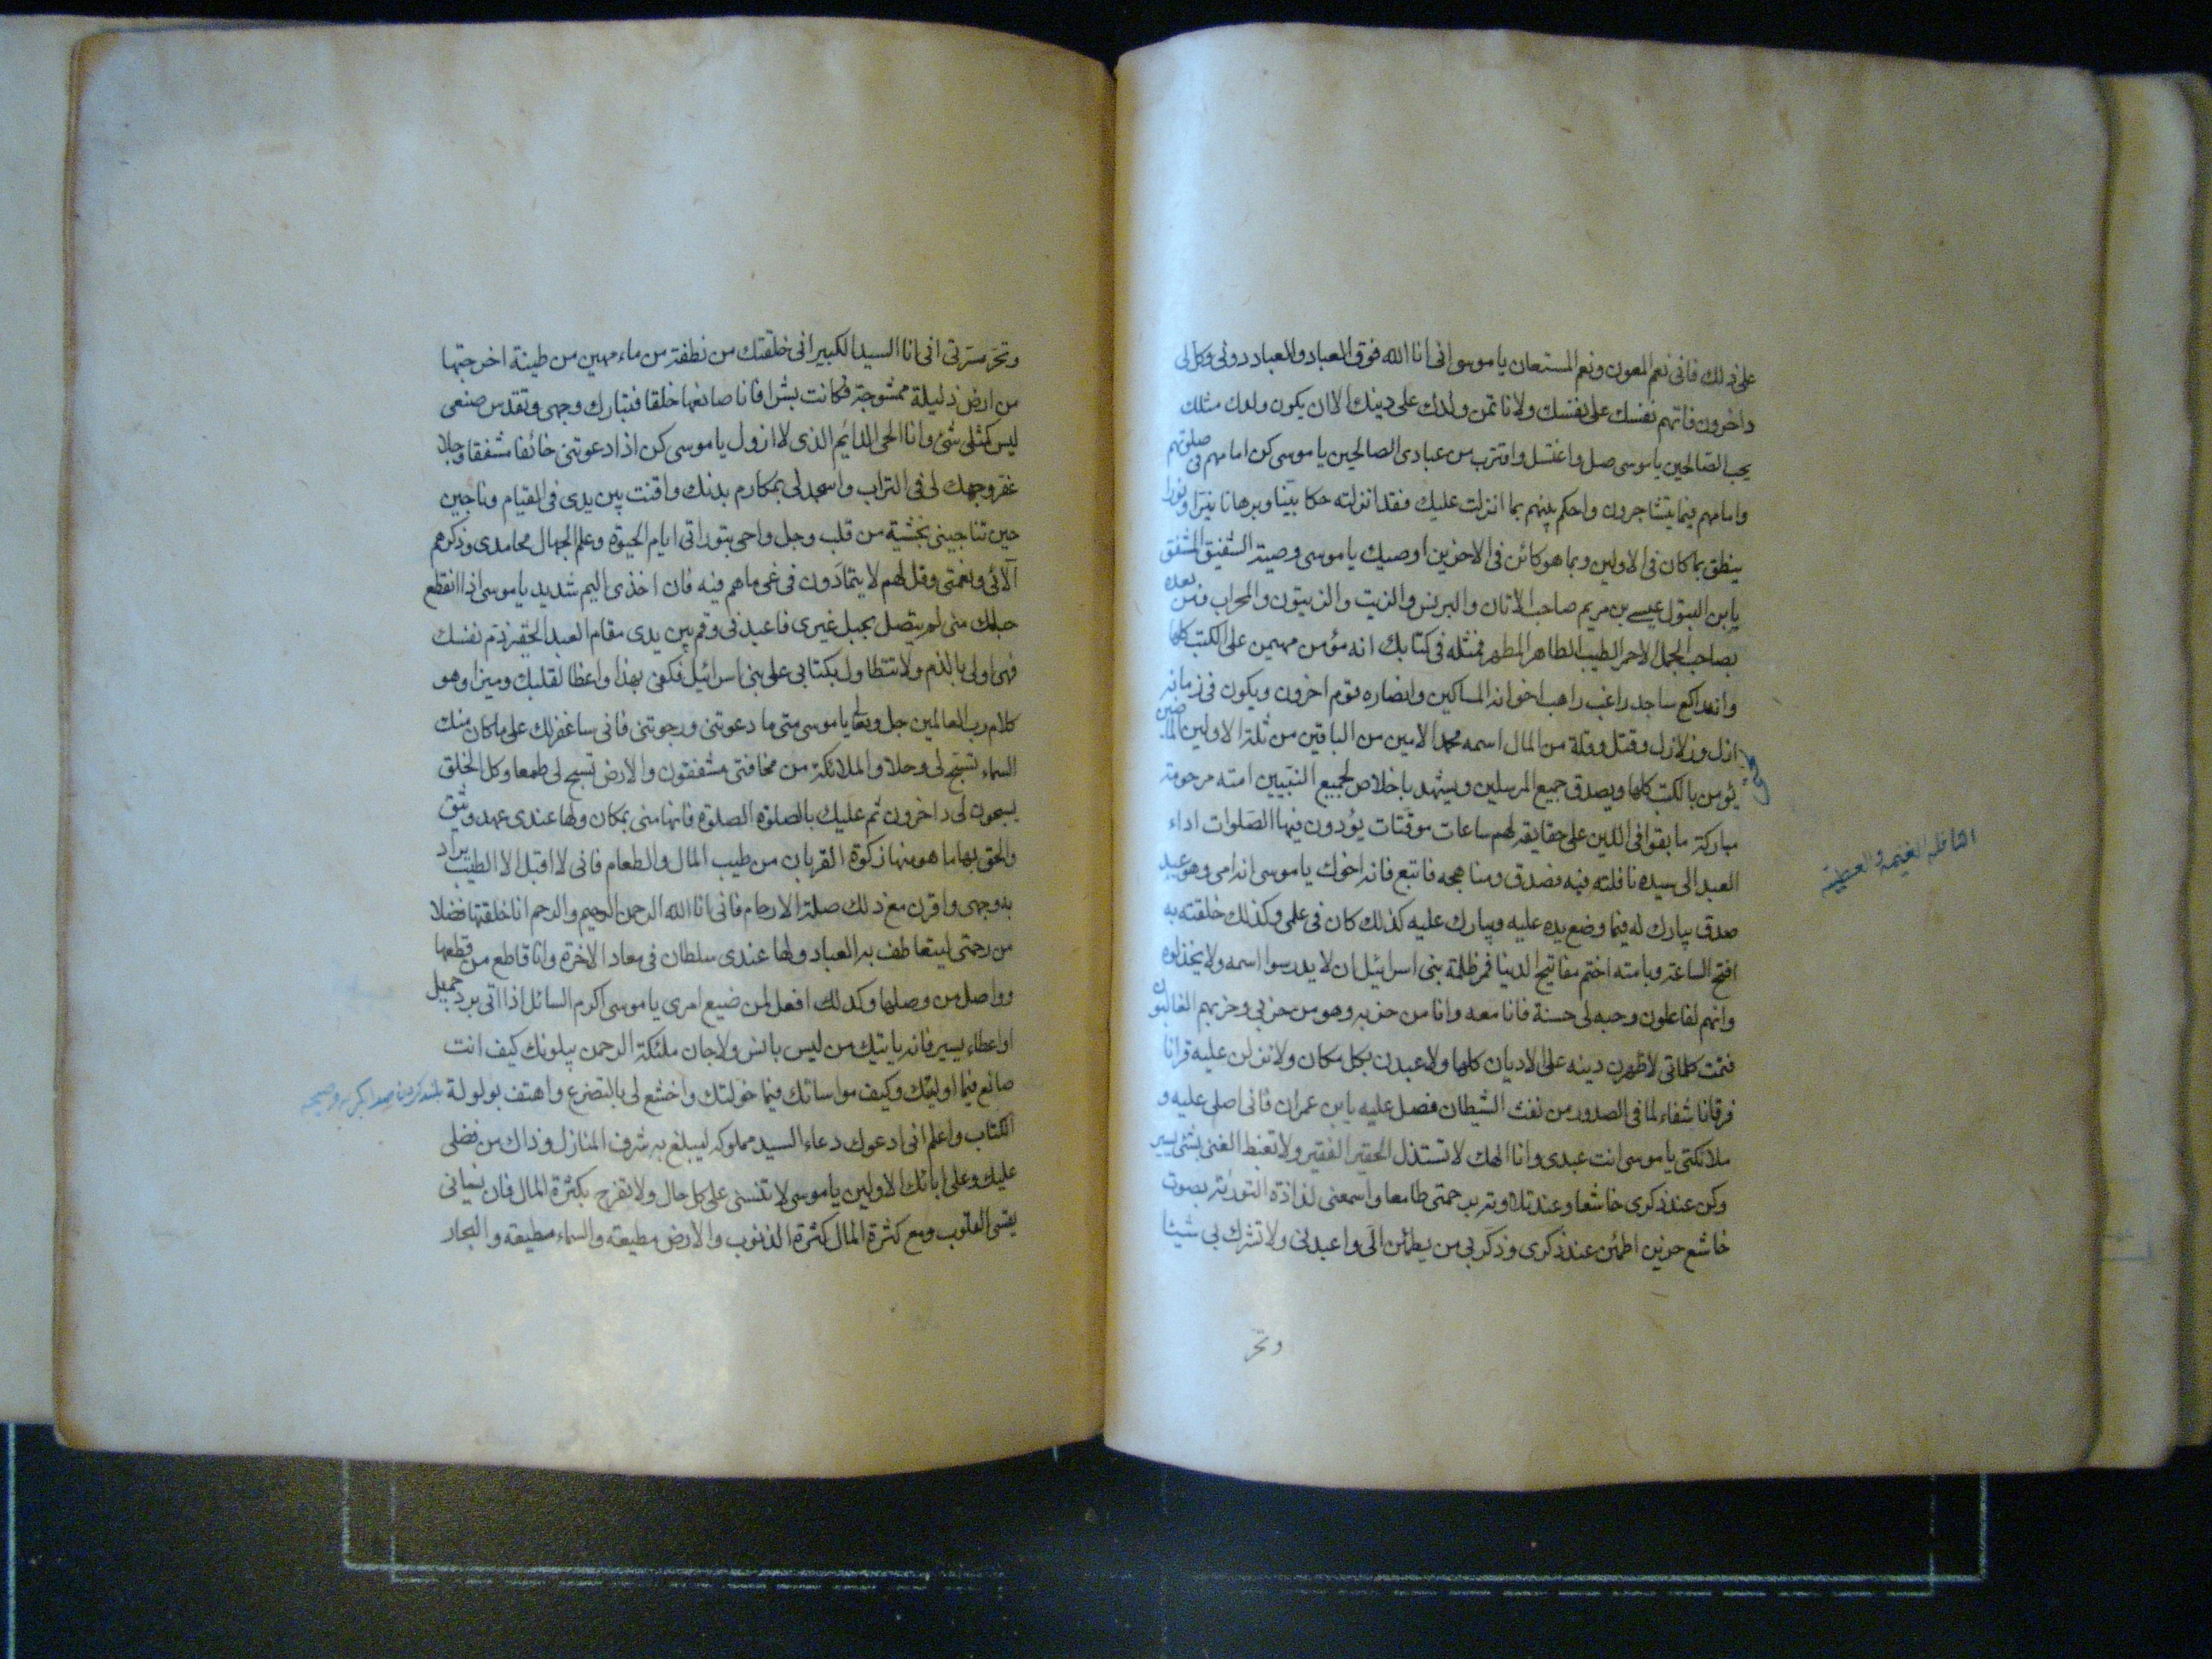 على ذلك فانى نعم المعون ونعم المستعان يا موسى انى انا الله فوق العباد والعباد دونى وكل لى
داخرون فاتهم نفسك على نفسك ولا تاتمن ولدك على دينك الا ان يكون ولدك مثلك
يحب الصالحين يا موسى صل واغتسل واقترب من عبادى الصالحين يا موسى كن امامهم فى صلوتهم
وامامهم فيما يتشاجرون واحكم بينهم بما انزلت عليك فقد انزلته حكما بينا وبرهانا نيرا ونورا
ينطق بما كان فى الاولين وبما هو كائن فى الاخرين اوصيك يا موسى وصية الشفيق المشفق
يابن البتول عيسى بن مريم صاحب الاتان والبرنس والزيت والزيتون والمحراب ومن بعده
بصاحب الجمل الاحمر الطيب الطاهر المطهر فمثله فى كتابك انه مؤمن مهيمن على الكتب كلها
وانه راكع ساجد راغب راهب اخوانه المساكين وانصاره قوم اخرون ويكون فى زمانه
ازل وزلازل وقتل وقلة من المال اسمه محمد الامين من الباقين من ثلة الاولين الماضين
يؤمن بالكتب كلها ويصدق جميع المرسلين ويشهد باخلاص لجميع النبيين امته مرحومة
مباركة ما بقوا فى الدين على حقايقه لهم ساعات موقتات يؤدون فيها الصلوات اداء
العبد الى سيده نافلته فبه فصدق ومناهجه فاتبع فانه اخوك يا موسى انه امى وهو عبد
صدق يبارك له فيما وضع يده عليه ويبارك عليه كذلك كان فى علمى وكذلك خلقته به
افتح الساعة وبامته اختم مفاتيح الدينا فمر ظلمة بنى اسرائيل ان لا يدرسوا اسمه ولا يخذلوه
وانهم لفاعلون وحبه لى حسنة فانا معه وانا من حزبه وهو من حزبى وحزبهم الغالبون
فتمت كلماتى لاظهرن دينه على الاديان كلها ولاعبدن بكل مكان ولانزلن عليه قرانا
فرقانا شفاء لما فى الصدور من نفث الشيطان فصل عليه يابن عمران فانى اصلى عليه و
ملائكتى يا موسى انت عبدى وانا الهك لا تستذل الحقير الفقير ولا تغبط الغنى بشئ يسير
وكن عند ذكرى خاشعا وعند تلاوته برحمتى طامعا واسمعنى لذاذة التورية بصوت
خاشع حزين اطمئن عند ذكرى وذكر بى من يطمئن الى واعبدنى ولا تشرك بى شيئا
وتحر
النافلة الغنيمة والعطية
وتحر مسرتى انى انا السيد الكبير انى خلقتك من نطفة من ماء مهين من طينة اخرجتها
من ارض ذليلة ممشوجة فكانت بشرا فانا صانعها خلقا فتبارك وجهى وتقدس صنعى
ليس كمثلى شئ وانا الحى الدائم الذى لا ازول يا موسى كن اذا دعوتنى خائفا مشفقا وجلا
عفر وجهك لى فى التراب واسجد لى بمكارم بدنك واقنت بين يدى فى القيام وناجنى
حين تناجينى بخشية من قلب وجل واحى بتوراتى ايام الحيوة وعلم الجهال محامدى وذكرهم
آلائى ونعمتى وقل لهم لا يتمادون فى غى ما هم فيه فان اخذى اليم شديد يا موسى اذا انقطع
حبلك منى لم يتصل بحبل غيرى فاعبدنى وقم بين يدى مقام العبد الحقير ذم نفسك
فهى اولى بالذم ولا تتطاول بكتابى على بنى اسرائيل فكفى بهذا واعظا لقلبك ومنيرا وهو
كلام رب العالمين جل وتعالى يا موسى متى ما دعوتنى ورجوتنى فانى ساغفر لك على ما كان منك
السماء تسبح لى وجلا والملائكة من مخافتى مشفقون والارض تسبح لى طمعا وكل الخلق
يسبحون لى داخرون ثم عليك بالصلوة الصلوة فانها منى بمكان ولها عندى عهد وثيق
والحق بها ما هو منها زكوة القربان من طيب المال والطعام فانى لا اقبل الا الطيب يراد
به وجهى واقرن مع ذلك صلة الارحام فانى انا الله الرحمن الرحيم والرحم انا خلقتها فضلا
من رحمتى ليتعاطف بها العباد ولها عندى سلطان فى معاد الاخرة وانا قاطع من قطعها
وواصل من وصلها وكذلك افعل لمن ضيع امرى يا موسى اكرم السائل اذا اتى برد جميل
او اعطاء يسير فانه ياتيك من ليس بانس ولا جان ملئكة الرحمن يبلونك كيف انت
صانع فيما اوليتك وكيف مواساتك فيما خولتك واخشع لى بالتضرع واهتف بولولة
الكتاب واعلم انى ادعوك دعاء السيد مملوكه ليبلغ به شرف المنازل وذاك من فضلى
عليك وعلى ابائك الاولين يا موسى لا تنسنى على كل حال ولا تفرح بكثرة المال فان نسيانى
يقسى القلوب ومع كثرة المال كثرة الذنوب والارض مطيعة والسماء مطيعة والبحار